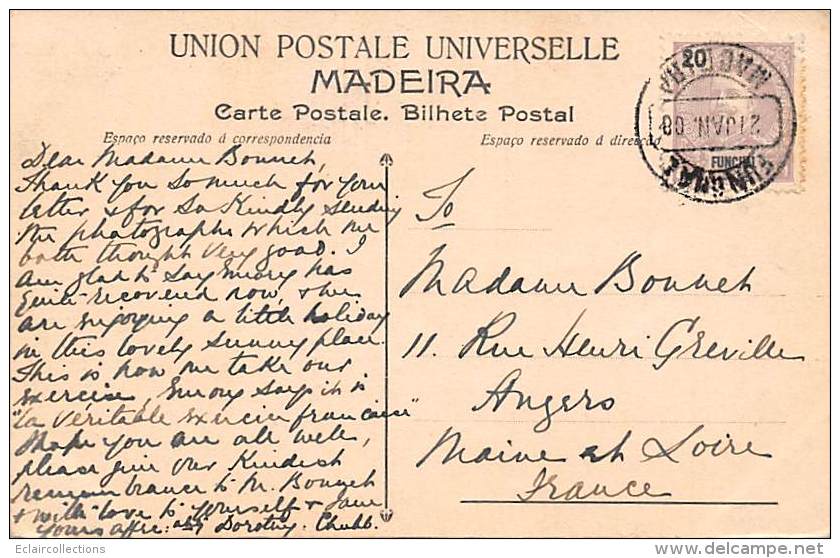 UNION POSTALE UNIVERSELLE
MADEIRA
Carte Postale. Bilhete Postal
Espaço reservado á correspondencia
Espaço reservado á direcção
20
MADEIRA
21 JAN 09
FUNCHAL
FUNCHAL
Dear Madame Bonnet,
Thank you so much for your
letter & for so kindly sending
the photographs which we
both thought very good. I
am glad to say Emory has
quite recovered now, & we
are enjoying a little holiday
in this lovely sunny place.
This is how we take our
exercise, Emory says it is
"la véritable exercice française"
Hope you are all well,
please give our kindest
remembrance to M. Bonnet
& with love to yourself & Jane
yours affec: Dorothy Chubb.
To
Madame Bonnet
11. Rue Henri Greville
Angers
Maine et Loire
France
Eclaircollections
delcampe.net